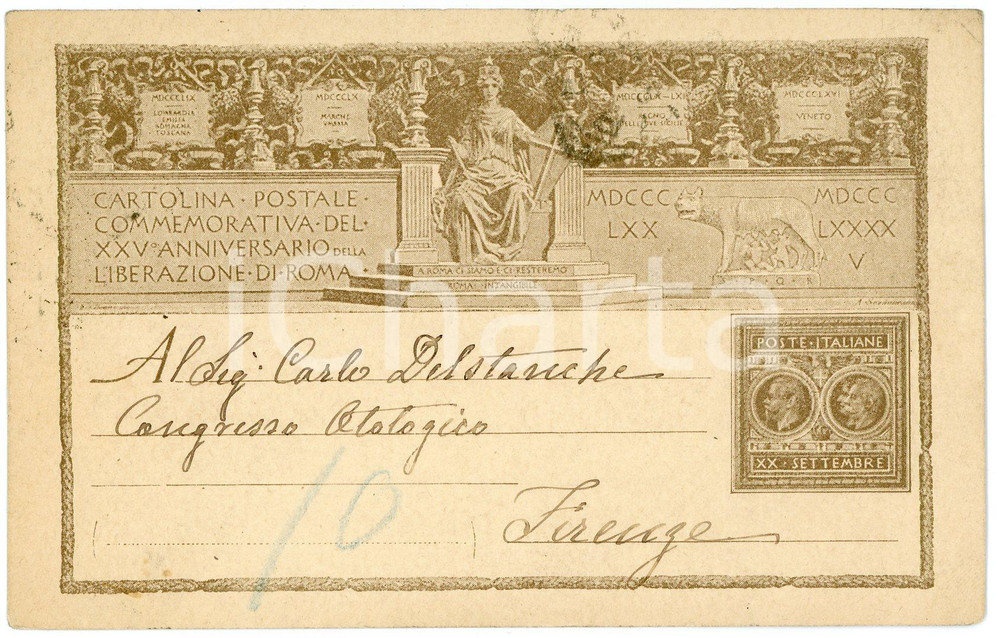 MDCCCLIX
LOMBARDIA
EMILIA
ROMAGNA
TOSCANA
MDCCCLX
MARCHE
UMBRIA
MDCCCLX-LXI
REGNO
DELLE DUE SICILIE
MDCCCLXVI
VENETO
CARTOLINA · POSTALE
COMMEMORATIVA · DEL ·
XXVº ANNIVERSARIO DELLA
LIBERAZIONE · DI · ROMA
A ROMA CI SIAMO E CI RESTEREMO
ROMA INTANGIBILE
MDCCC
LXX
MDCCC
LXXXX
V
S · P · Q · R
ICharta
POSTE · ITALIANE
XX · SETTEMBRE
Al Sig. Carlo Delstanche
Congresso Otologico
Firenze
10